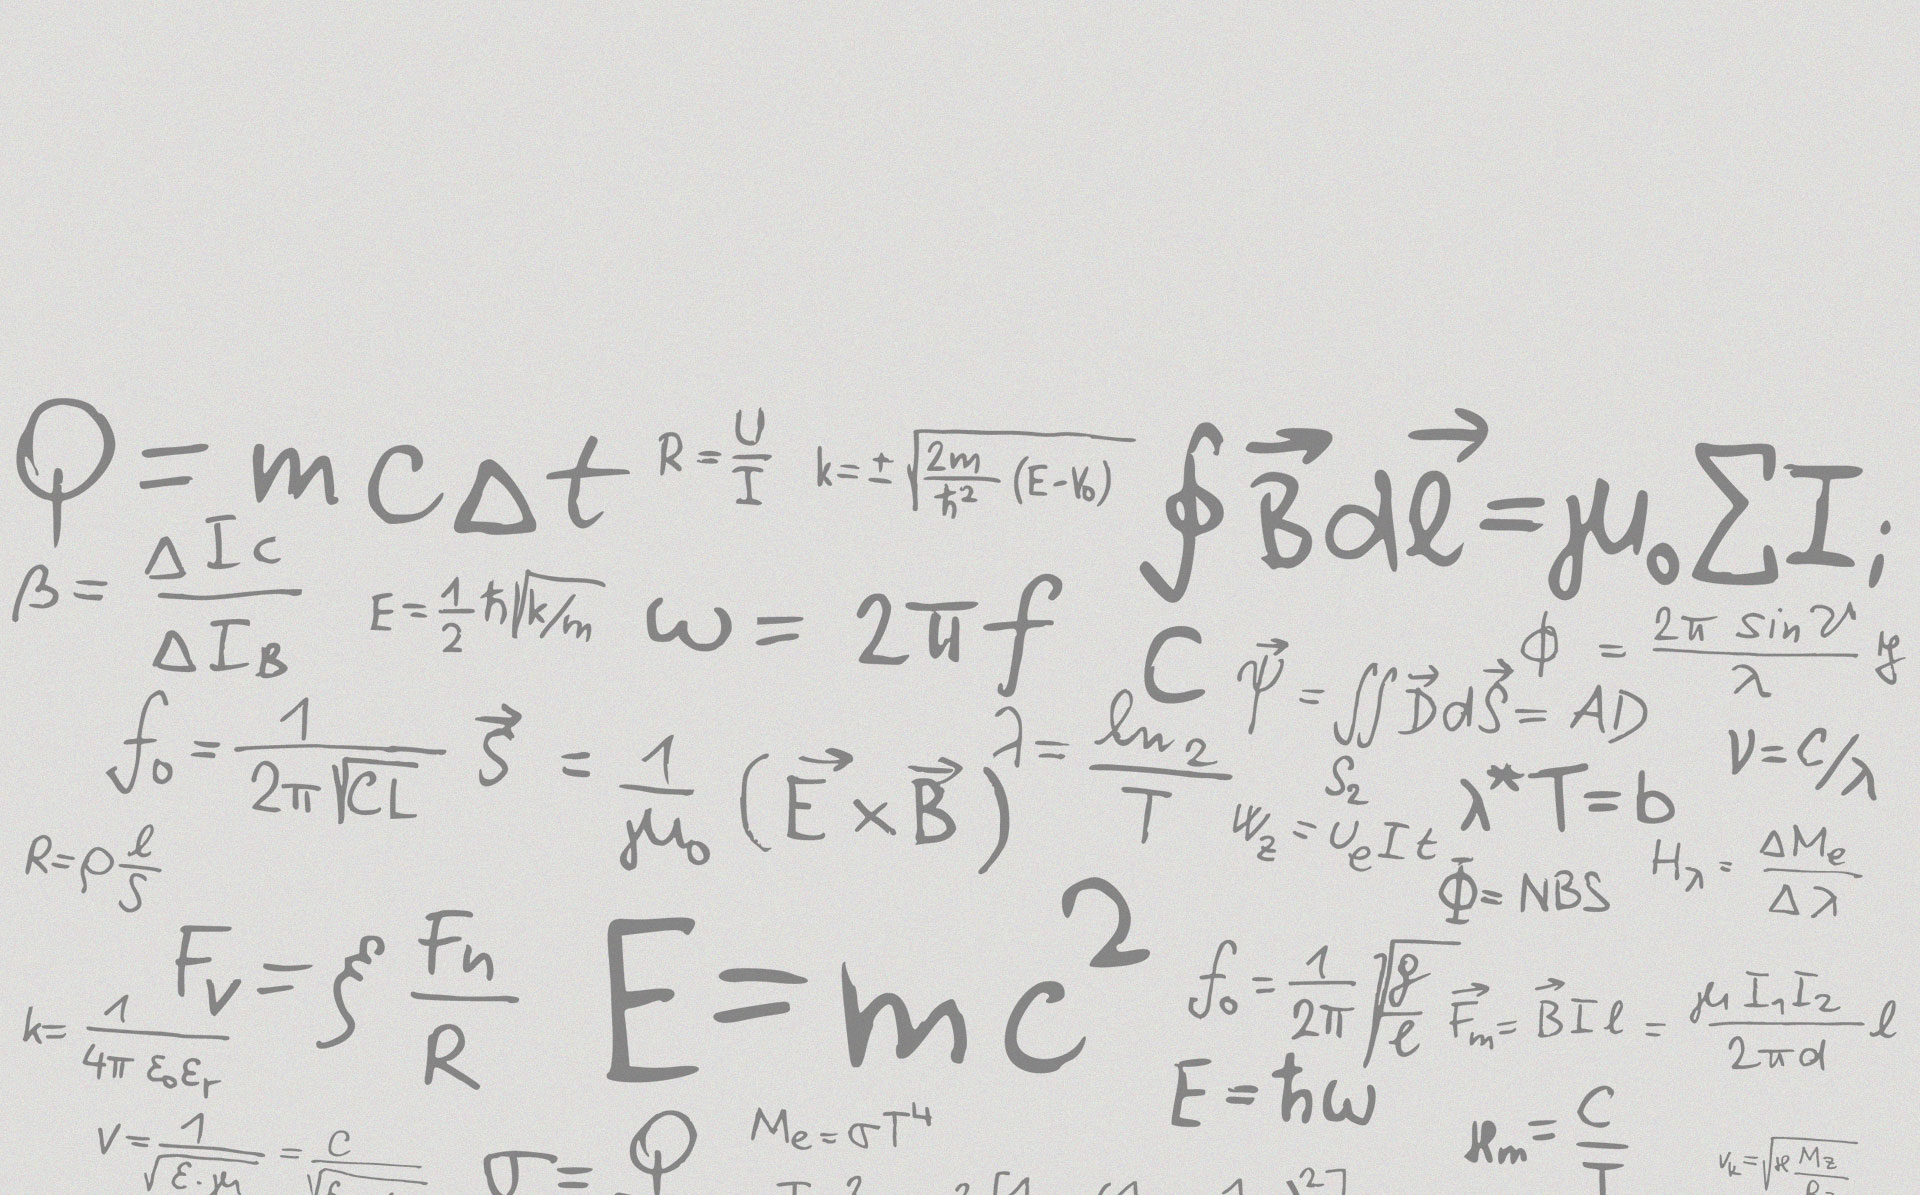 Q = m c Δ t
R = U/I
k = ± √(2m/ħ² (E-V₀))
∮ B⃗ d ℓ⃗ = μ₀ Σ I ;
β = Δ I c / Δ I B
E = 1/2 ħ √(k/m)
ω = 2π f
C
ψ⃗ = ∬ D⃗ d S⃗ = AD
S₂
ϕ = 2π sin ϑ / λ y
f₀ = 1 / 2π √CL
S⃗ = 1/μ₀ (E⃗ × B⃗)
λ = ln 2 / T
ν = c/λ
λ* T = b
R = ρ ℓ/S
W_z = U_e I t
Φ = NBS
H_λ = ΔM_e / Δλ
F_v = ξ F_n / R
E = mc²
f₀ = 1/2π √(g/ℓ)
F⃗_m = B⃗ I ℓ = μ I₁ I₂ / 2πd ℓ
k = 1 / 4π ε₀ ε_r
E = ħω
M_e = σT⁴
v = 1 / √(ε·μ) = c / √
σ = Q
= C / T
v_k = √(ϰ M_z